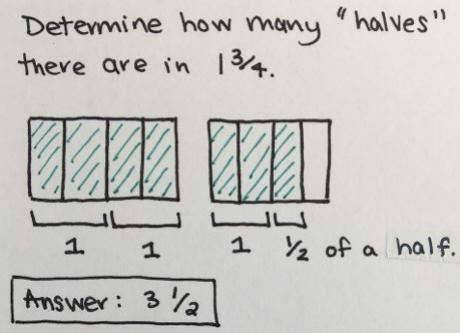 Determine how many "halves"
there are in 1 3/4.
1 1 1 1/2 of a half.
Answer: 3 1/2